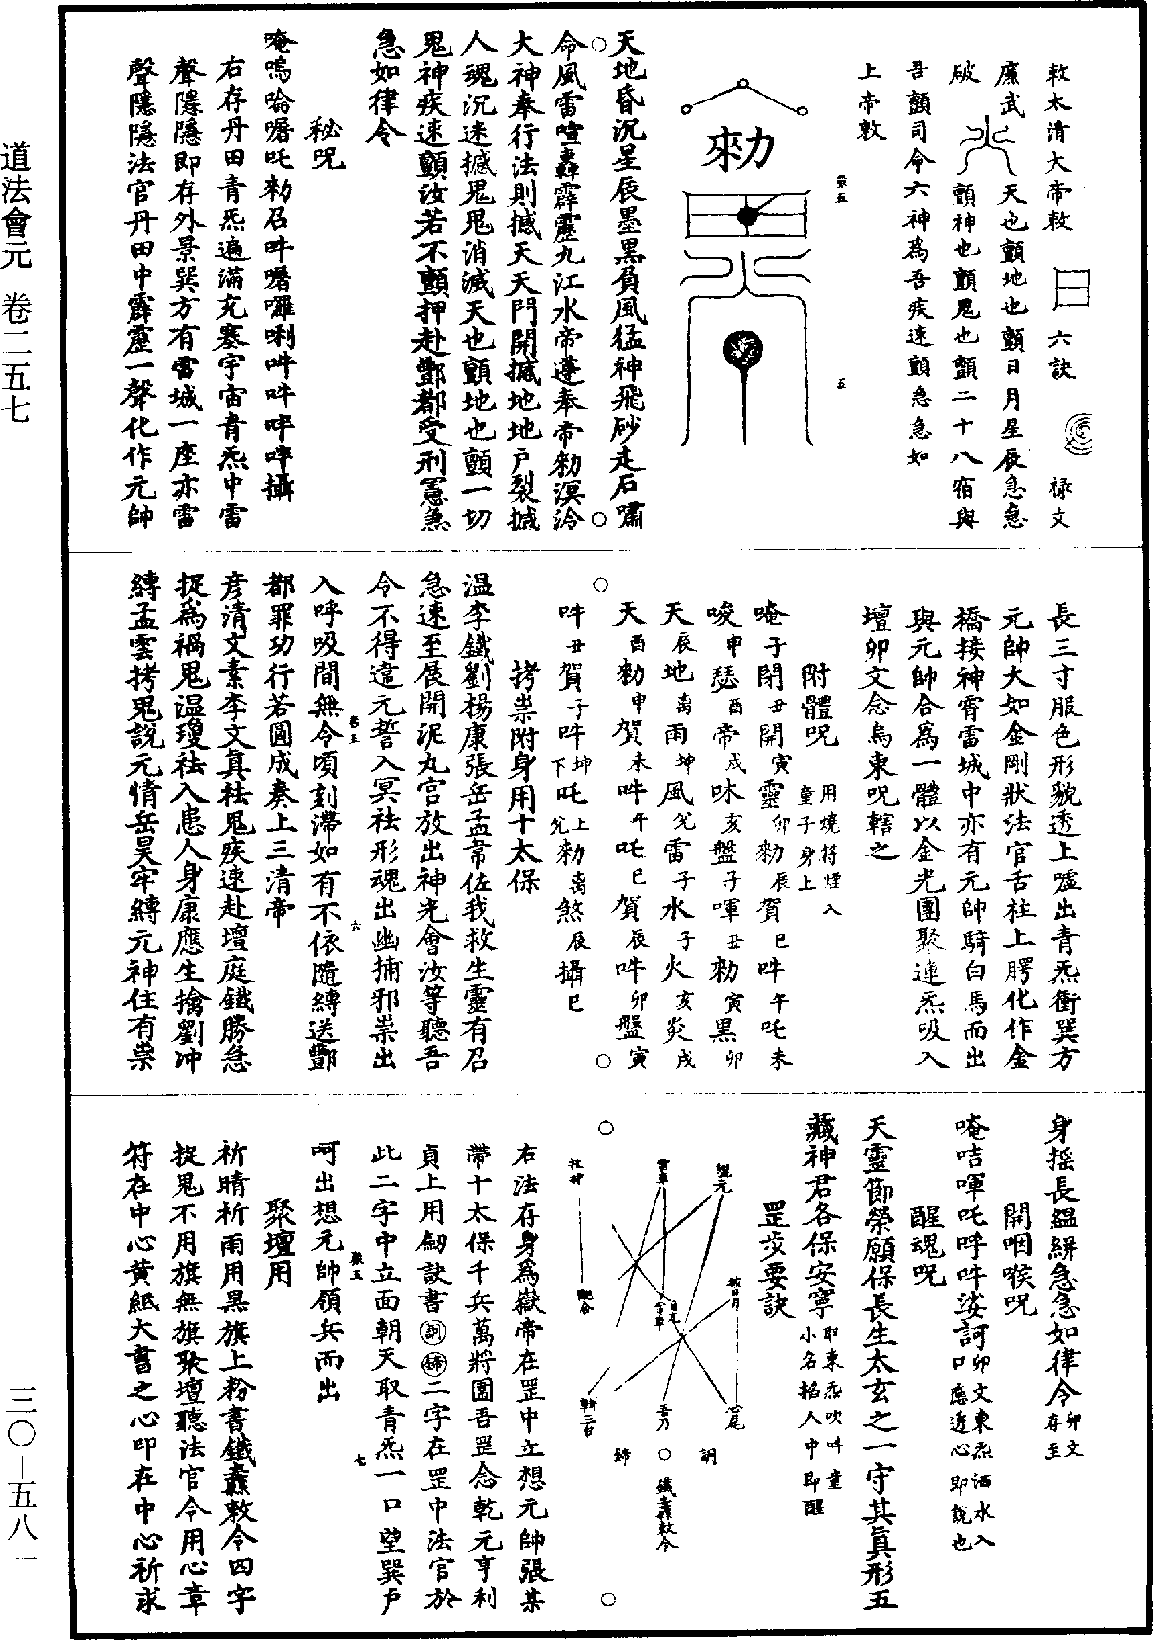 道法會元 卷二五七
三〇—五八一
敕太清大帝敕 六訣 祿文
廉武 天也顫地也顫日月星辰急急
破 顫神也顫鬼也顫二十八宿與
吾顫司命六神為吾疾速顫急急如
上帝敕
勑
天地昏沉星辰墨黑負風猛神飛砂走石嘯
命風雷喧轟霹靂九江水帝蓬奉帝勑溟泠
大神奉行法則撼天天門開撼地地戶裂撼
人魂沉迷撼鬼鬼消滅天也顫地也顫一切
鬼神疾速顫汝若不顫押赴酆都受刑憲急
急如律令
秘咒
唵嗚哈囑吒勑召吽囑囉唎吽吽啐啐攝
右存丹田青炁遍滿充塞宇宙青炁中雷
聲隱隱即存外景巽方有雷城一座亦雷
聲隱隱法官丹田中霹靂一聲化作元帥
長三寸服色形貌透上嚧出青炁衝巽方
元帥大如金剛狀法官舌柱上腭化作金
橋接神霄雷城中亦有元帥騎白馬而出
與元帥合為一體以金光團聚連炁吸入
壇卯文念烏東咒轄之
附體咒 用燒符煙入童子身上
唵子閉丑開寅靈卯勑辰賀巳吽午吒未
唆申瑟酉帝戌呠亥盤子喗丑勑寅黑卯
天辰地离雨坤風兌雷子水子火亥炎戌
天酉勑申賀未吽午吒巳賀辰吽卯盤寅
吽丑賀子吽坤下吒上兌勑离煞辰攝巳
拷祟附身用十太保
溫李鐵劉楊康張岳孟韋佐我救生靈有召
急速至展開泥丸宮放出神光會汝等聽吾
令不得違元誓入冥祛形魂出幽捕邪祟出
入呼吸間無令頃刻滯如有不依隨縛送酆
都罪功行若圓成奏上三清帝
彥清文素李文真祛鬼疾速赴壇庭鐵勝急
捉為禍鬼溫瓊祛入患人身康應生擒劉沖
縛孟雲拷鬼說元情岳昊牢縛元神住有祟
身搖長縕絣急急如律令 卯文存至
開咽喉咒
唵咭喗吒呼吽娑訶 卯文東炁洒水入口應近心即說也
醒魂咒
天靈節榮願保長生太玄之一守其真形五
藏神君各保安寧 取東炁吹吽童小名掐人中即醒
罡步要訣
右法存身為嶽帝在罡中立想元帥張某
帶十太保千兵萬將圍吾罡念乾元亨利
貞上用劒訣書二字在罡中法官於
此二字中立面朝天取青炁一口望巽戶
呵出想元帥領兵而出
聚壇用
祈晴祈雨用黑旗上粉書鐵纛敕令四字
捉鬼不用旗無旗聚壇聽法官令用心章
符在中心黃紙大書之心印在中心祈求